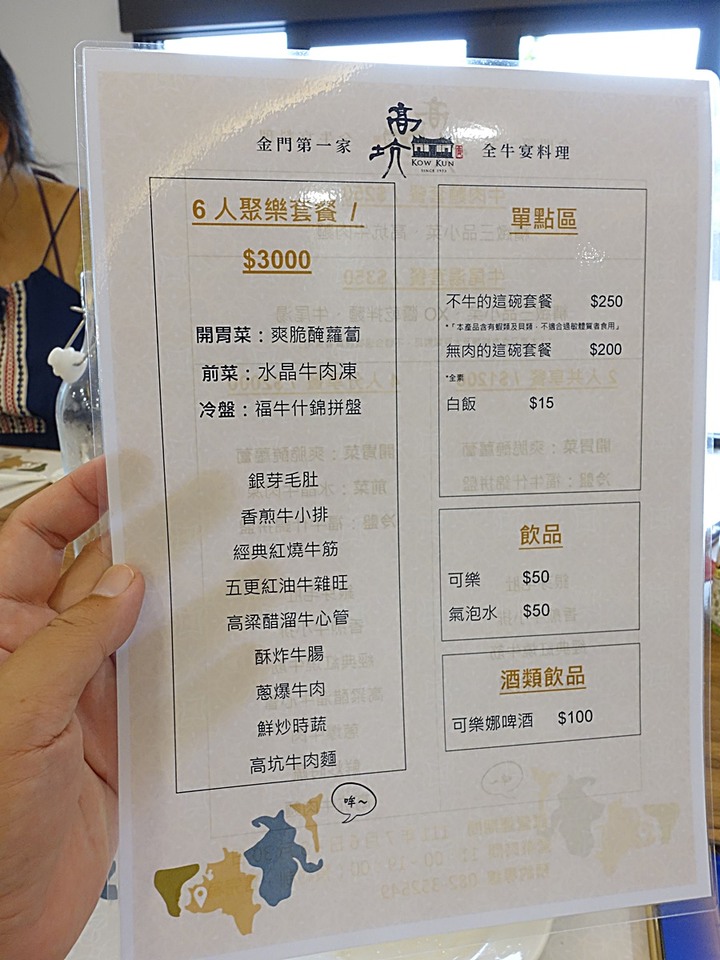 金門第一家
高坑
KOW KUN
SINCE 1956
全牛宴料理
6 人聚樂套餐 /
$3000
開胃菜：爽脆醃蘿蔔
前菜：水晶牛肉凍
冷盤：福牛什錦拼盤
銀芽毛肚
香煎牛小排
經典紅燒牛筋
五更紅油牛雜旺
高粱醋溜牛心管
酥炸牛腸
蔥爆牛肉
鮮炒時蔬
高坑牛肉麵
哞~
單點區
不牛的這碗套餐 $250
*「本產品含有蝦類及貝類，不適合過敏體質者食用」
無肉的這碗套餐 $200
*全素
白飯 $15
飲品
可樂 $50
氣泡水 $50
酒類飲品
可樂娜啤酒 $100